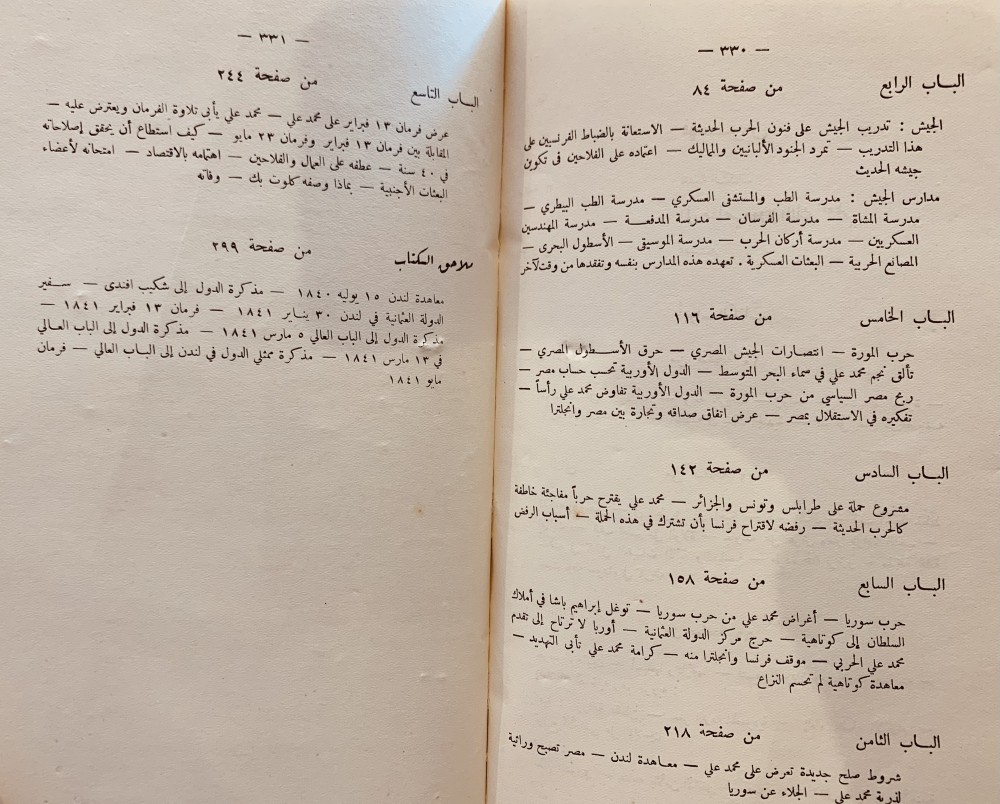 — ٣٣٠ —
الباب الرابع من صفحة ٨٤
الجيش : تدريب الجيش على فنون الحرب الحديثة — الاستعانة بالضباط الفرنسيين على
هذا التدريب — تمرد الجنود الألبانيين والماليك — اعتماده على الفلاحين في تكوين
جيشه الحديث
مدارس الجيش : مدرسة الطب والمستشفى العسكري — مدرسة الطب البيطري —
مدرسة المشاة — مدرسة الفرسان — مدرسة المدفعة — مدرسة المهندسين
العسكريين — مدرسة أركان الحرب — مدرسة الموسيقى — الأسطول البحرى —
المصانع الحربية — البعثات العسكرية . تعهده هذه المدارس بنفسه وتفقدها من وقت لآخر
الباب الخامس من صفحة ١١٦
حرب المورة — انتصارات الجيش المصري — حرق الأسطول المصري —
تألق نجم محمد علي في سماء البحر المتوسط — الدول الأوربية تحسب حساب مصر —
ربح مصر السياسي من حرب المورة — الدول الأوربية تفاوض محمد علي رأساً —
تفكيره في الاستقلال بمصر — عرض اتفاق صداقه وتجارة بين مصر وانجلترا
الباب السادس من صفحة ١٤٢
مشروع حملة على طرابلس وتونس والجزائر — محمد علي يقترح حرباً مفاجئة خاطفة
كالحرب الحديثة — رفضه لاقتراح فرنسا بأن تشترك في هذه الحملة — أسباب الرفض
الباب السابع من صفحة ١٥٨
حرب سوريا — أغراض محمد علي من حرب سوريا — توغل إبراهيم باشا في أملاك
السلطان إلى كوتاهية — حرج مركز الدولة العثمانية — أوربا لا ترتاح إلى تقدم
محمد علي الحربي — موقف فرنسا وانجلترا منه — كرامة محمد علي تأبى التهديد —
معاهدة كوتاهية لم تحسم النزاع
الباب الثامن من صفحة ٢١٨
شروط صلح جديدة تعرض على محمد علي — معاهدة لندن — مصر تصبح وراثية
لذرية محمد علي — الجلاء عن سوريا
— ٣٣١ —
الباب التاسع من صفحة ٢٤٤
عرض فرمان ١٣ فبراير على محمد علي — محمد علي يأبى تلاوة الفرمان ويعترض عليه —
المقابلة بين فرمان ١٣ فبراير وفرمان ٢٣ مايو — كيف استطاع أن يحقق إصلاحاته
في ٤٠ سنة — عطفه على العمال والفلاحين — اهتمامه بالاقتصاد — امتحانه لأعضاء
البعثات الأجنبية — بماذا وصفه كلوت بك — وفاته
ملاحق الكتاب من صفحة ٢٩٩
معاهدة لندن ١٥ يوليه ١٨٤٠ — مذكرة الدول إلى شكيب افندى — سفير
الدولة العثمانية في لندن ٣٠ يناير ١٨٤١ — فرمان ١٣ فبراير ١٨٤١ —
مذكرة الدول إلى الباب العالي ٥ مارس ١٨٤١ — مذكرة الدول إلى الباب العالي
في ١٣ مارس ١٨٤١ — مذكرة ممثلي الدول في لندن إلى الباب العالي — فرمان
مايو ١٨٤١